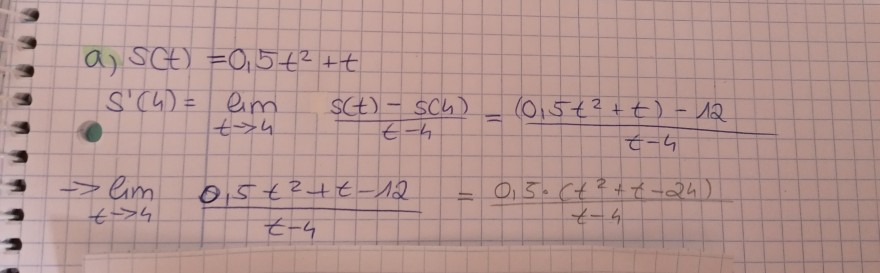 a) S(t) = 0,5t² + t
S'(4) = lim t→4 (s(t) - s(4))/(t-4) = ((0,5t² + t) - 12)/(t-4)
→ lim t→4 (0,5t² + t - 12)/(t-4) = (0,5·(t² + t - 24))/(t-4)